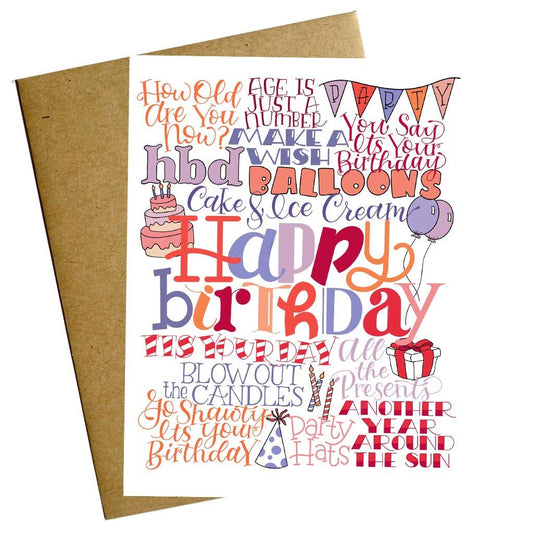 How Old
Are You
Now?
AGE IS
JUST A
NUMBER
PARTY
MAKE A
WISH
You Say
It's Your
Birthday
hbd
BALLOONS
Cake & Ice Cream
Happy
birthday
IT'S YOUR DAY
All
the
Presents
BLOW OUT
the CANDLES
Go Shawty
It's Your
Birthday
Party
Hats
ANOTHER
YEAR
AROUND
THE SUN